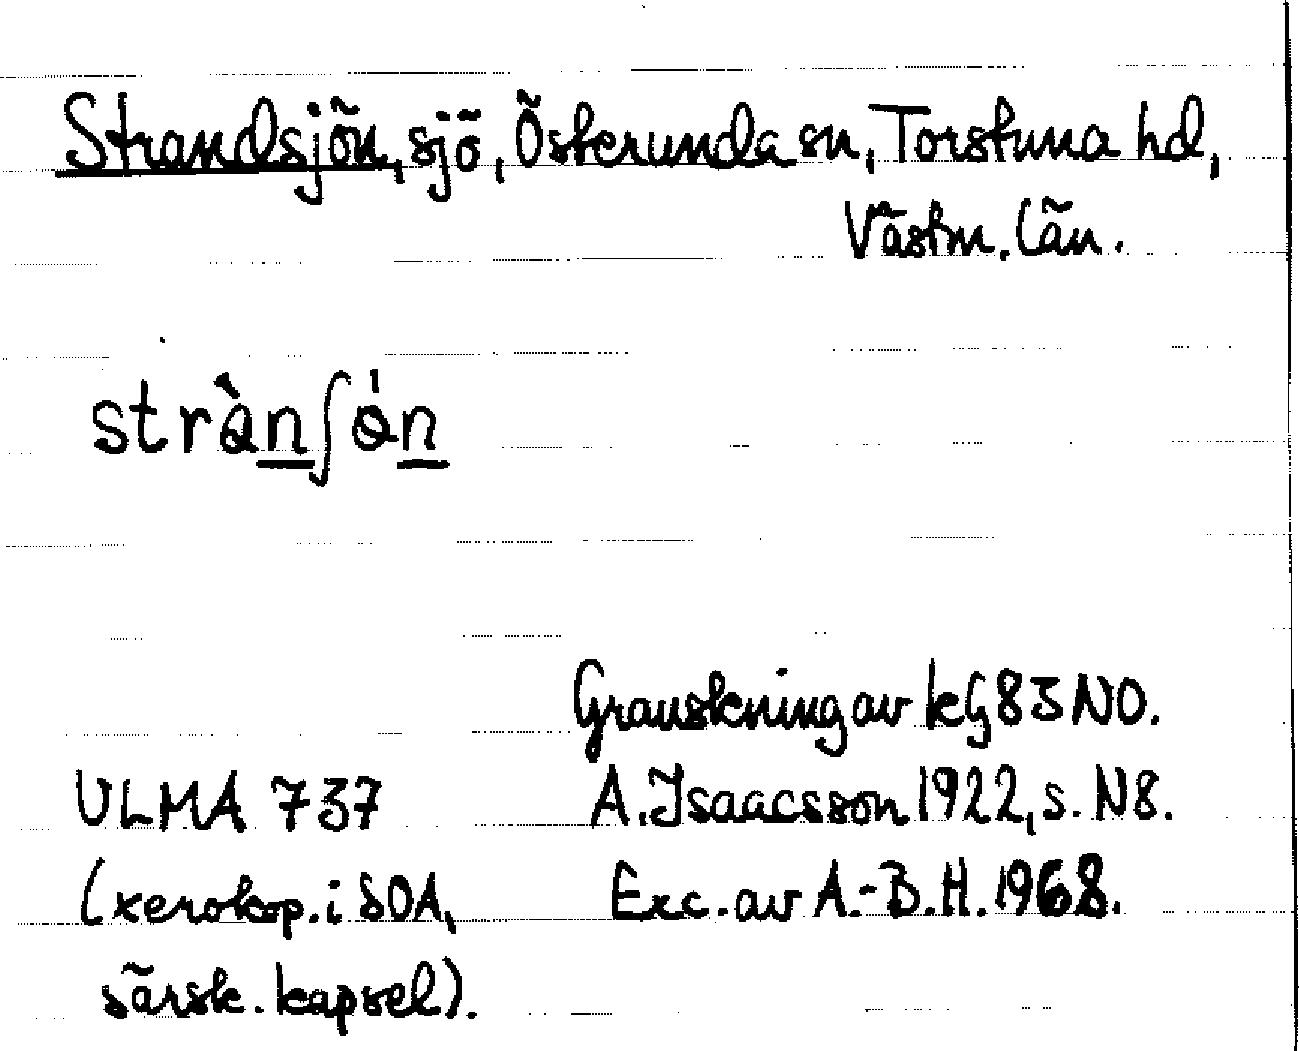 Strandsjön, sjö, Österunda sn, Torstuna hd,
Västm. län.
strànʃón
Granskning av kG 83 NO.
ULMA 737 A. Isaacsson 1922, s. N8.
(xerokop. i SOA, Exc. av A.-B.H. 1968.
särsk. kapsel).